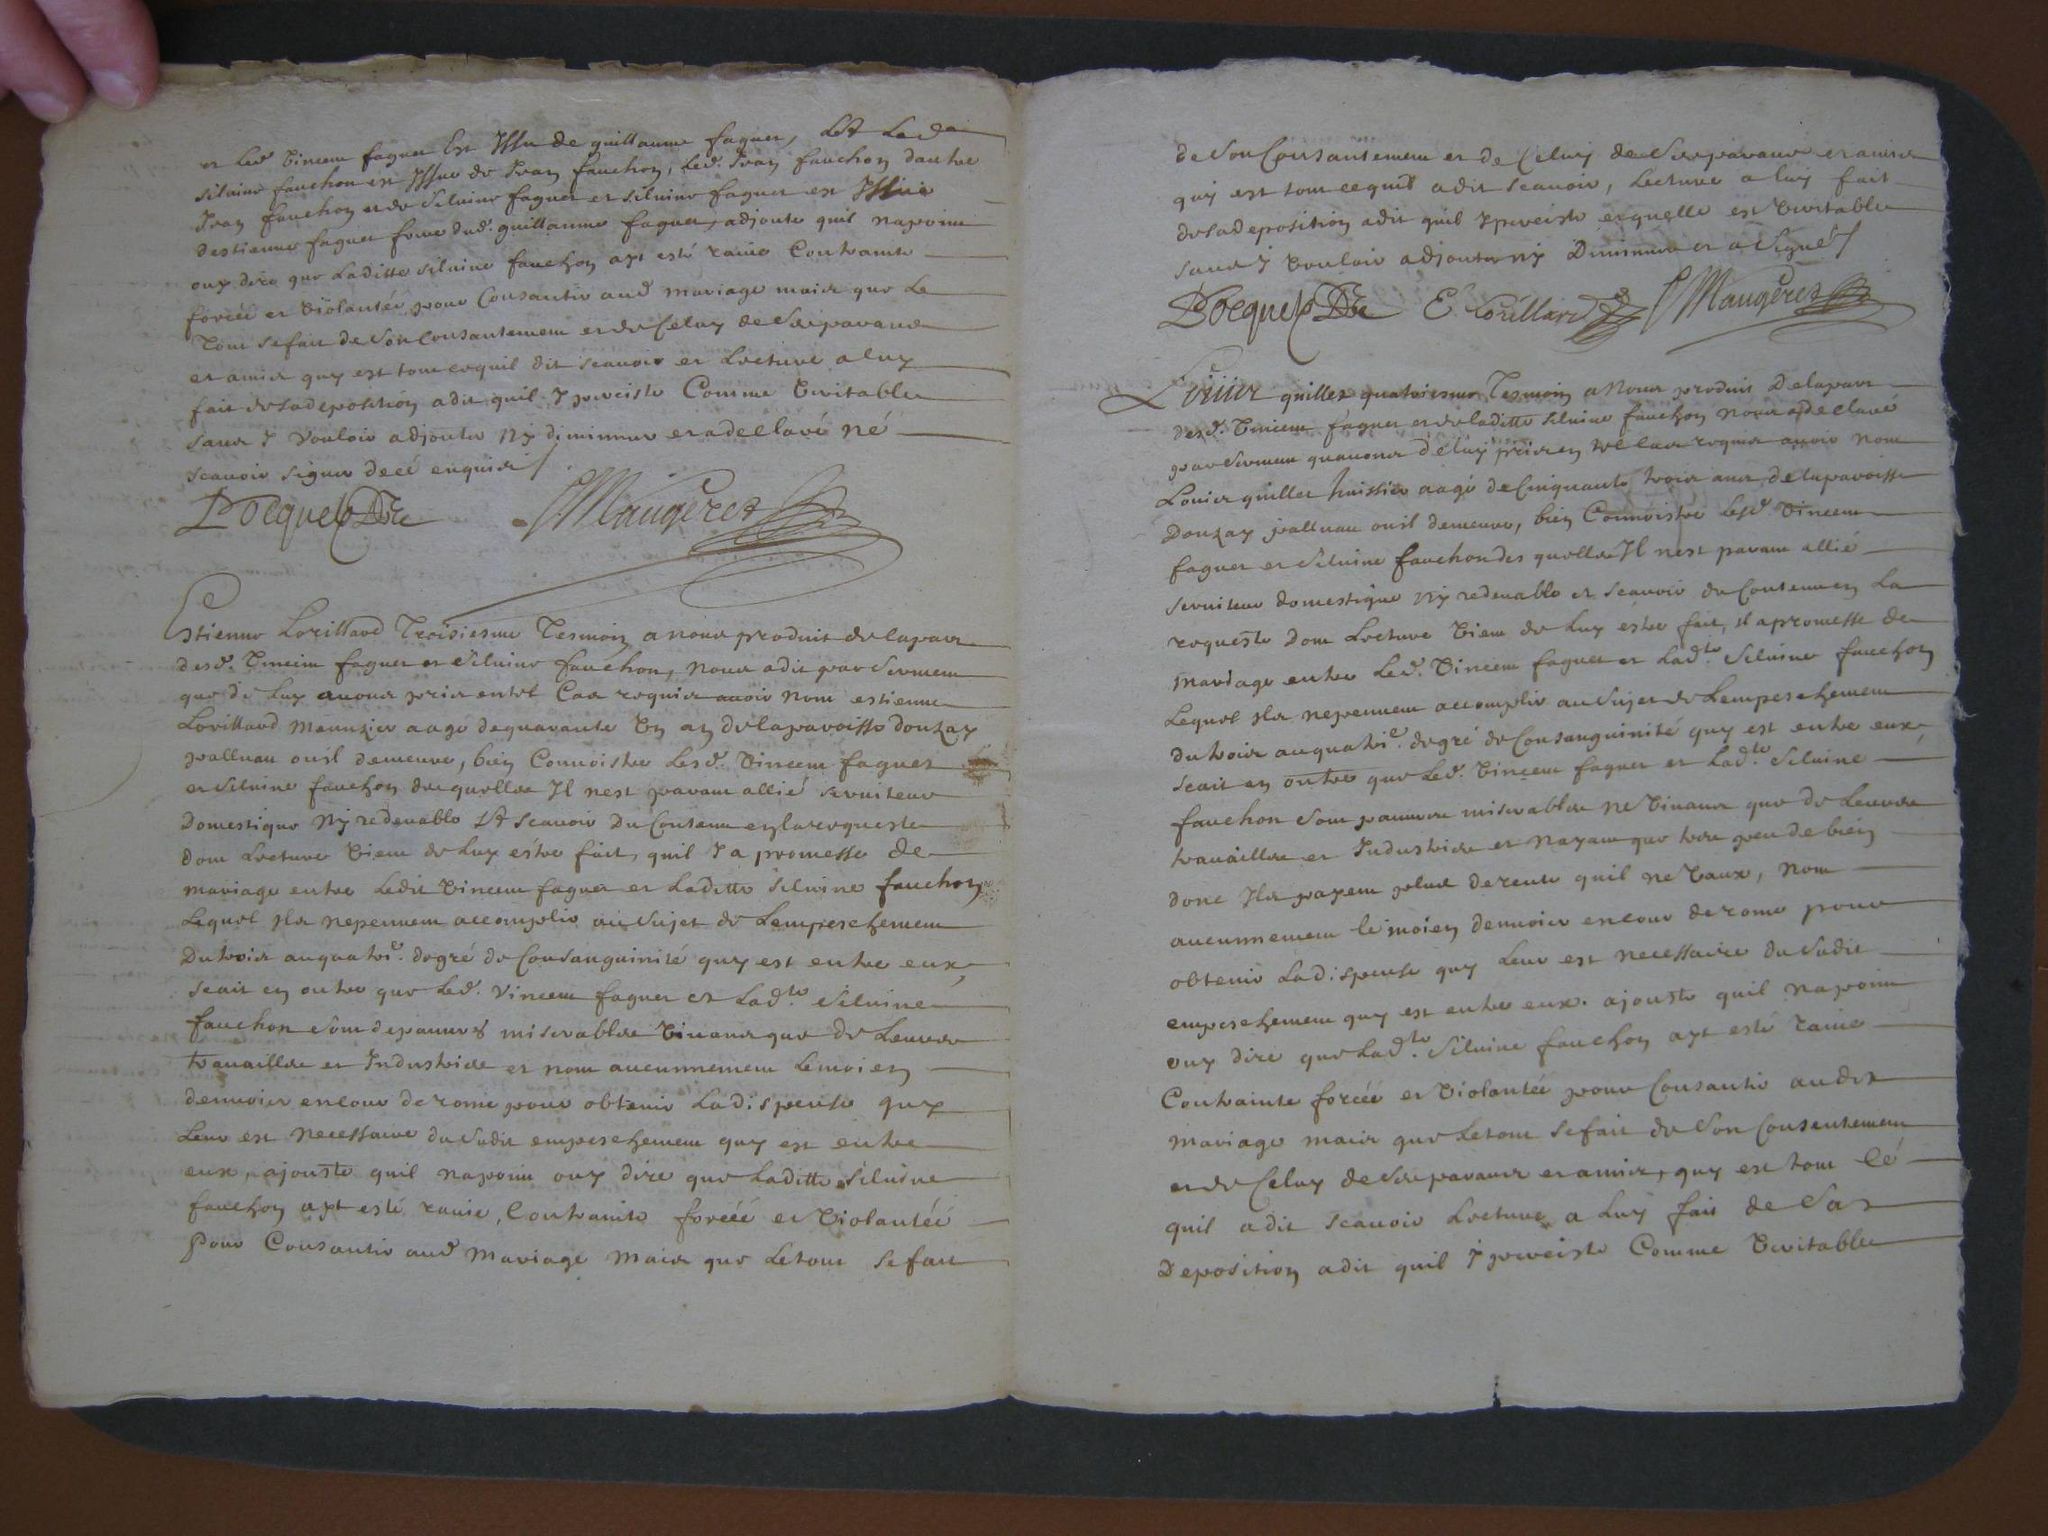 et led. Vincent faguet Est Issu de guillaume faguet, Et lade
silvine fauchon est Issue de Jean fauchon, led. Jean fauchon dautre
Jean fauchon et de Silvine faguet et silvine faguet est Issue
destienne faguet frere dud. guillaume faguet, adjoute quil napoint
ouy dire que Laditte silvine fauchon ayt esté ravie Contrainte
forcée et Violantée pour Consantir aud mariage mais que Le
Tout sefait de Son Consantement et de Celuy de Ses parans
et amis quy est tout cequil dit scavoir et Lecture a luy
fait desadeposition adit quil Y perciste Comme Veritable
sans Y Vouloir adjouter Ny diminuer et adeclaré né
scavoir signer decé enquis
Pocquet
Maugeret
Estienne Lorillard Troisiesme Tesmoin a nous produit delapart
desd. Vincent faguet et Silvine fauchon, nous adit par Serment
que de Luy avons pris entel Cas requis avoir nom estienne
Lorillard Meunzier aagé dequarante Un an delaparoisse donzay
palluau ouil demeure, bien Connoistre Lesd. Vincent faguet
et Silvine fauchon desquelles Il nest parant allié serviteur
Domestique Ny redevable Et Scavoir Du Contenu enlarequeste
dont Lecture Vient de Luy estre fait, quil Y a promesse de
mariage entre Ledit Vincent faguet et Laditte Silvine fauchon
Lequel Ils nepeuvent accomplir au Sujet de Lempeschement
Dutrois auquatre. degré de Consanguinité quy est entre eux,
scait en outre que Led. Vincent faguet et Ladte. Silvine
fauchon Sont depauvres miserables Vivans que de Leurs
travailles et Industries et nont aucunnement Lemoien
denvoier encour derome pour obtenir Ladispense quy
Leur est Necessaire duSudit empeschement quy est entre
eux, ajouste quil napoint ouy dire que Laditte Silvine
fauchon ayt esté ravie, Contrainte forcée et Violantée
Pour Consantir aud Mariage Mais que Letout Sefait
de Son Consantement et de Celuy de Ses parans et amis
quy est tout cequil adit scavoir, Lecture a luy fait
desadeposition adit quil Yperciste et quelle est Veritable
sans Y Vouloir adjouter ny Diminuer et a Signé
Pocquet E Lorillard Maugeret
Louis quillet quatriesme Tesmoin a Nous produit Delapart
desd. Vincent faguet et deladitte Silvine fauchon Nous a declaré
par Serment quavons de luy pris en tel cas requis avoir nom
Louis quillet huissier aagé de Cinquante trois ans delaparoisse
Donzay palluau ouil demeure, bien Connoistre Lesd Vincent
faguet et Silvine fauchon des quelles Il nest parant allié
serviteur domestique Ny redevable et scavoir du Contenu en La
requeste Dont Lecture Vient de Luy estre fait, Il apromesse de
Mariage entre Led. Vincent faguet et Ladte. Silvine fauchon
Lequel Ils nepeuvent accomplir au Sujet de Lempeschement
du trois auquatre. degré de Consanguinité quy est entre eux,
scait en outre que Led. Vincent faguet et Ladte. Silvine
fauchon Sont pauvres miserables Ne Vivans que de Leurs
travailles et Industries et Nayant que tres peu de bien
donc Ils payent plus derente quil ne Vaux, Nont
aucunnement le moien denvoier encour derome pour
obtenir Ladispense quy Leur est necessaire du Sudit
empeschement quy est entre eux. ajouste quil Napoint
ouy dire que Ladte. Silvine fauchon ayt esté ravie
Contrainte forcée et Violantée pour Consantir audit
mariage mais que Letout sefait de Son Consentement
et de Celuy de Ses parans et amis, quy est tout Cé
quil adit scavoir Lecture a Luy fait de Sa
Deposition adit quil Y perciste Comme Veritable